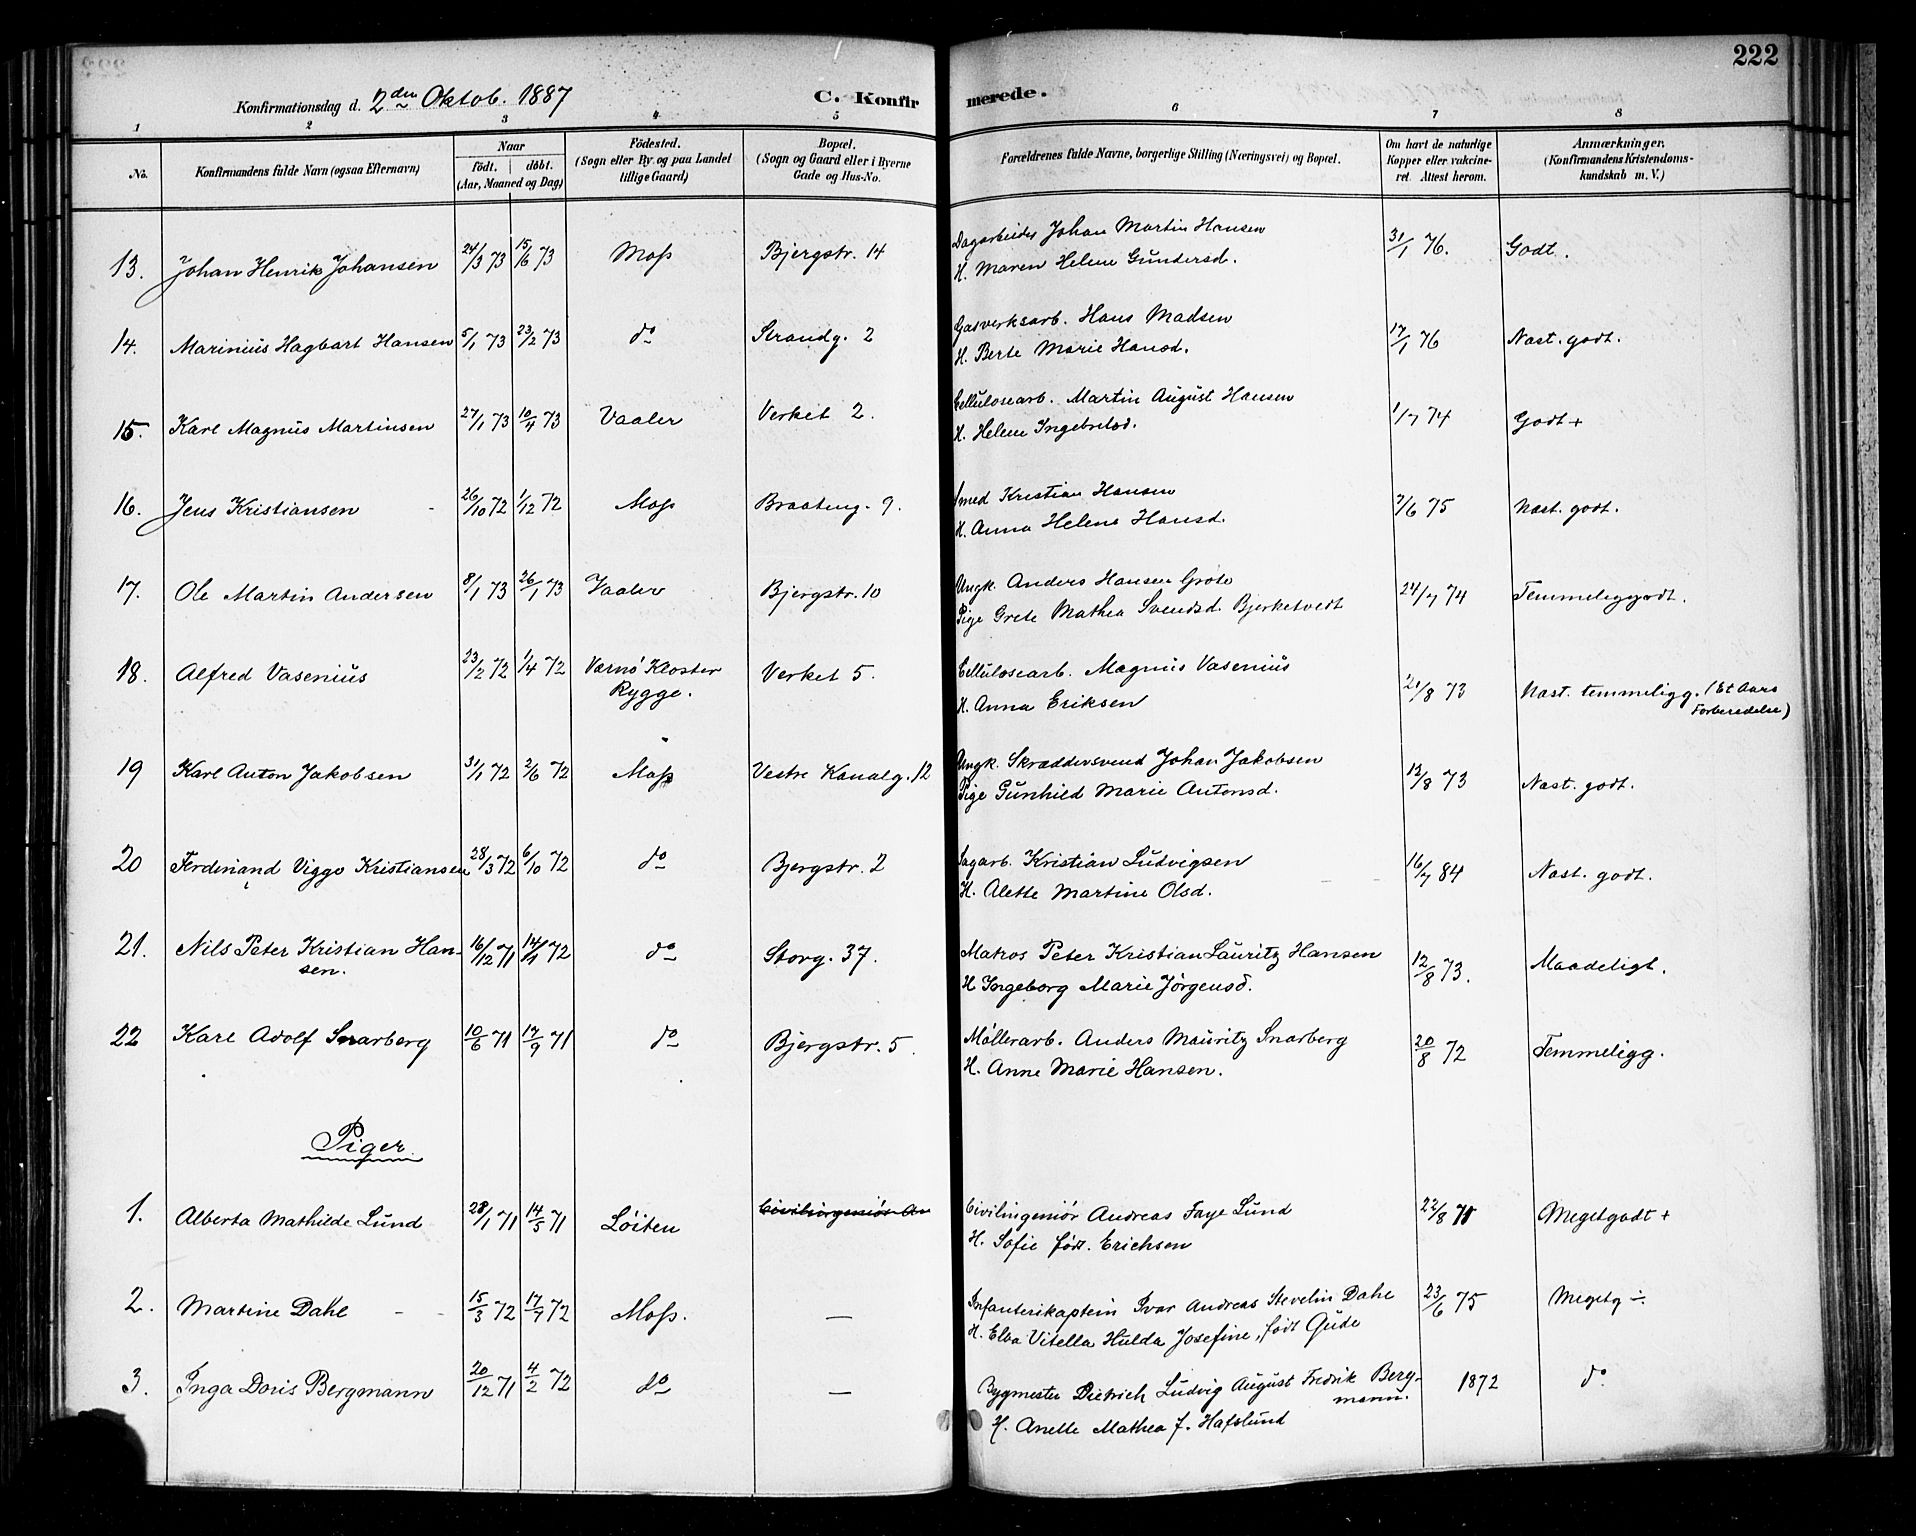 222
Konfirmationsdag d. 2den Oktob. 1887 C. Konfirmerede.
1 2 3 4 5 6 7 8
No. Konfirmandens fulde Navn (ogsaa Efternavn) Naar födt. döbt. (Aar, Maaned og Dag) Födested. (Sogn eller By og paa Landet tillige Gaard) Bopæl. (Sogn og Gaard eller i Byerne Gade og Hus-No. Forældrenes fulde Navne, borgerlige Stilling (Næringsvei) og Bopæl. Om havt de naturlige Kopper eller vakcineret. Attest herom. Anmærkninger. (Konfirmandens Kristendomskundskab m. V.)
13. Johan Henrik Johansen 24/3 73 15/6 73 Moss Bjergstr. 14 Dagarbeider Johan Martin Hansen 31/1 76. Godt.
H. Maren Helene Gundersd.
14. Marinius Hagbart Hansen 5/1 73 23/2 73 do Strandg. 2 Gasverksarb. Hans Madsen 17/1 76 Næst. godt.
H. Berte Marie Hansd.
15. Karl Magnus Martinsen 27/1 73 10/4 73 Vaaler Verket 2. Cellulosearb. Martin August Hansen 1/7 74 Godt +
H. Helene Ingebretsd.
16. Jens Kristiansen 26/10 72 1/12 72 Moss Braateng. 9. Smed Kristian Hansen 7/6 75 Næst. godt.
H. Anna Helene Hansd.
17. Ole Martin Andersen 8/1 73 26/1 73 Vaaler Bjergstr. 10 Ungk. Anders Hansen Grote 24/7 74 Temmeliggodt.
Pige Grete Mathea Svendsd. Bjerketvedt
18. Alfred Vasenius 23/2 72 1/4 72 Værnø Kloster Verket 5. Cellulosearb. Magnus Vasenius 21/8 73 Næst. temmeligg. (Et Aars
Rygge. H. Anna Eriksen Forberedelse)
19 Karl Anton Jakobsen 31/1 72 2/6 72 Moss Vestre Kanalg. 12 Ungk. Skræddersvend Johan Jakobsen 12/8 73 Næst. godt.
Pige Gunhild Marie Antonsd.
20 Ferdinand Viggo Kristiansen 28/3 72 6/10 72 do Bjergstr. 2 Sagarb. Kristian Ludvigsen 16/7 84 Næst. godt.
H. Alette Martine Olsd.
21. Nils Peter Kristian Han- 16/12 71 14/1 72 do Storg. 37. Matros Peter Kristian Lauritz Hansen 12/8 73. Maadeligt.
sen. H Ingeborg Marie Jörgensd.
22 Karl Adolf Snarberg 10/6 71 17/9 71 do Bjergstr. 5. Møllerarb. Anders Mauritz Snarberg 20/8 72 Temmeligg.
H. Anne Marie Hansen.
Piger.
1. Alberta Mathilde Lund 28/1 71 14/5 71 Löiten Civilingeniör An Civilingeniör Andreas Faye Lund 22/8 71 Megetgodt +
H. Sofie født. Erichsen
2. Martine Dahl - - 15/3 72 17/7 72 Moss. — Infanterikaptein Ivar Andreas Stevelin Dahl 23/6 75 Megetg ÷
H. Elva Vitella Hulda Josefine, født Gude
3. Inga Doris Bergmann 20/12 71 4/2 72 do — Bygmester Dietrich Ludvig August Fredrik Berg- 1872 do
mann.
H. Anette Mathea f. Hafslund